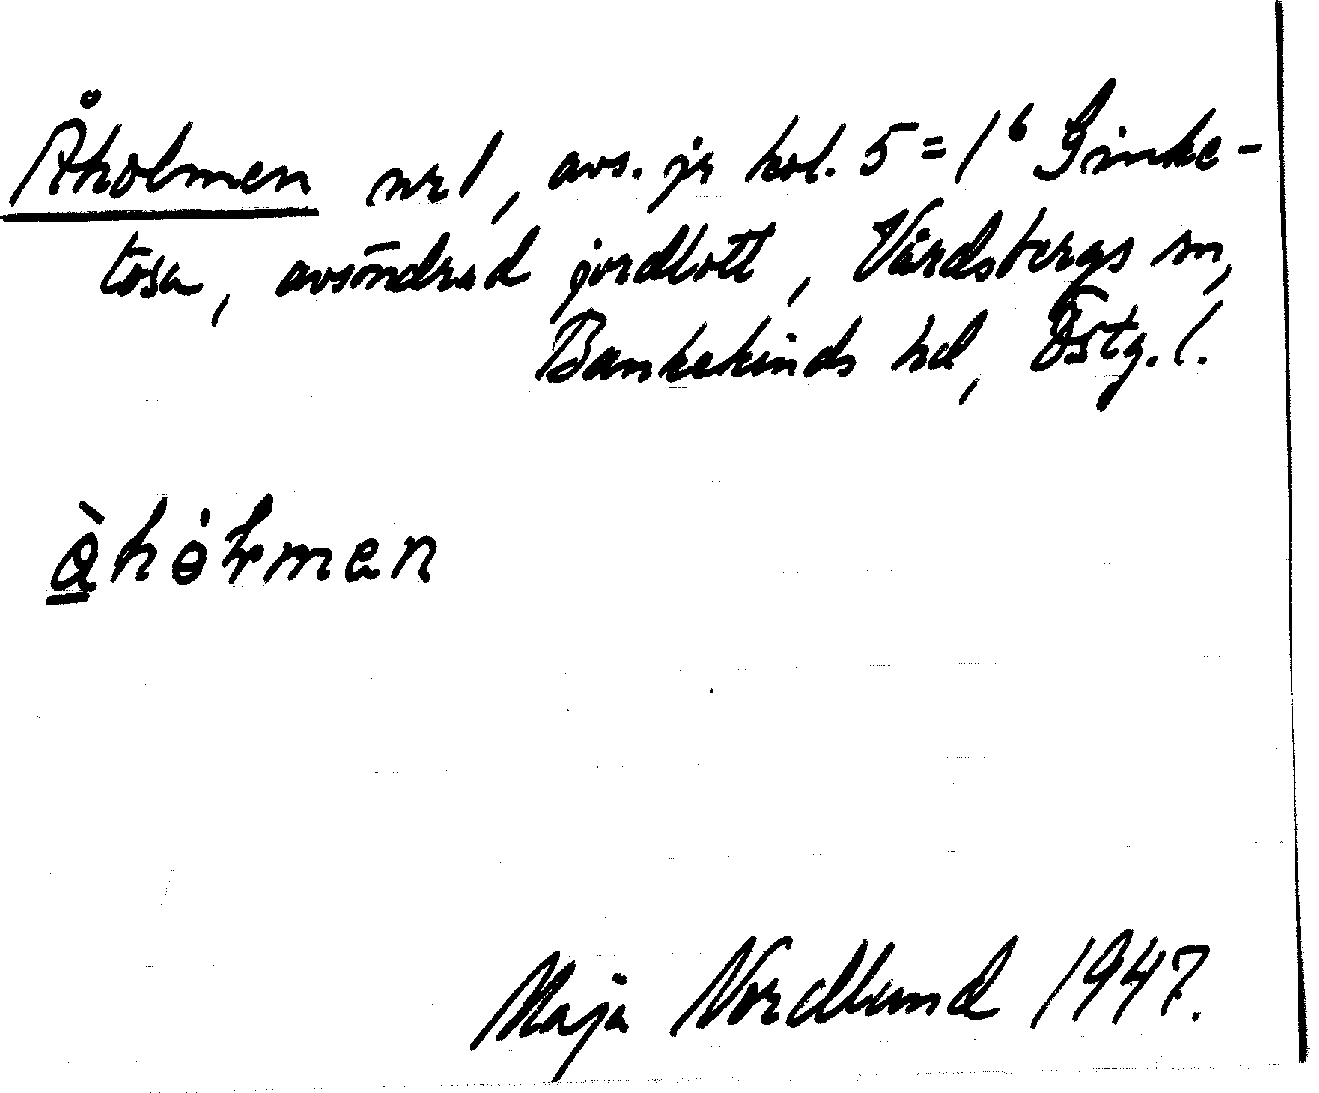 Åholmen nr 1, avs. jr kol. 5 = 1⁶ Ginke-
tosa, avsöndrad jordlott, Vårdsbergs sn,
Bankekinds hd, Östg. l.
Maja Nordlund 1947.